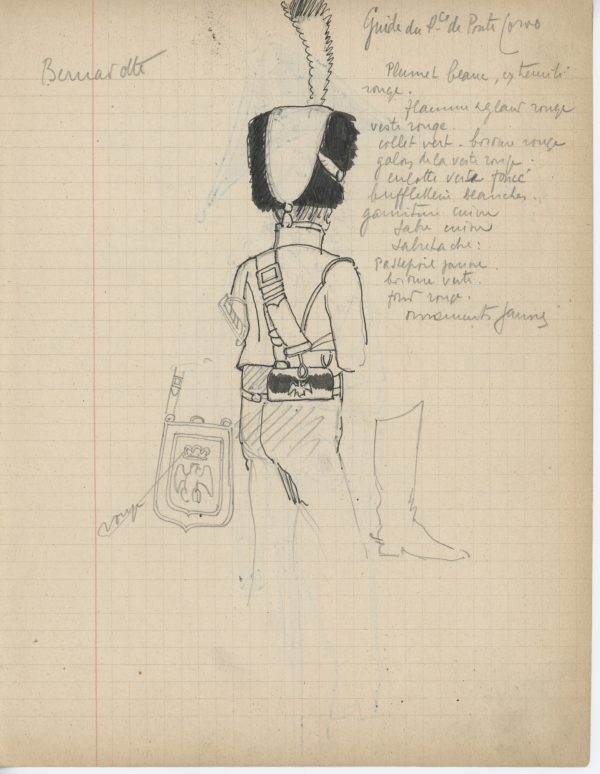 Bernadotte
Guide du Pce de Ponte Corvo
Plumet blanc, extrémité
rouge.
flamme & gland rouge
veste rouge
collet vert - bordure rouge
galons de la veste rouge.
culotte verte foncé
buffleterie blanches.
garniture cuivre
Sabre cuivre
Sabretache:
Passepoil jaune.
bordure verte.
fond rouge.
ornements jaunes
rouge